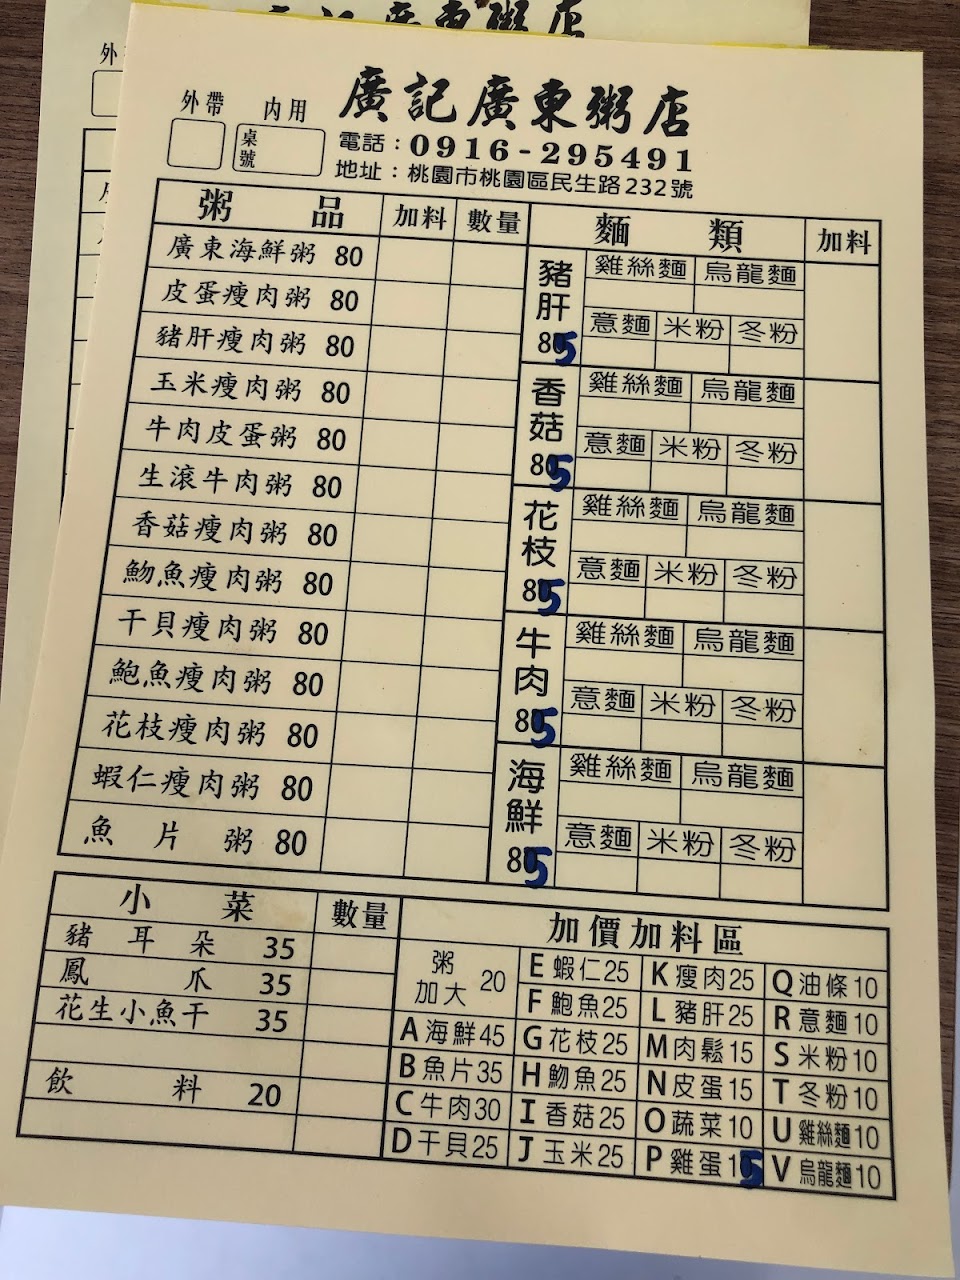 廣記廣東粥店
外
外帶 內用
桌號
電話：0916-295491
地址：桃園市桃園區民生路232號
粥品 加料 數量
廣東海鮮粥 80
皮蛋瘦肉粥 80
豬肝瘦肉粥 80
玉米瘦肉粥 80
牛肉皮蛋粥 80
生滾牛肉粥 80
香菇瘦肉粥 80
魩魚瘦肉粥 80
干貝瘦肉粥 80
鮑魚瘦肉粥 80
花枝瘦肉粥 80
蝦仁瘦肉粥 80
魚片粥 80
麵類 加料
豬肝 85
雞絲麵 烏龍麵
意麵 米粉 冬粉
香菇 85
雞絲麵 烏龍麵
意麵 米粉 冬粉
花枝 85
雞絲麵 烏龍麵
意麵 米粉 冬粉
牛肉 85
雞絲麵 烏龍麵
意麵 米粉 冬粉
海鮮 85
雞絲麵 烏龍麵
意麵 米粉 冬粉
小菜 數量
豬耳朵 35
鳳爪 35
花生小魚干 35
飲料 20
加價加料區
粥加大 20
A 海鮮45
B 魚片35
C 牛肉30
D 干貝25
E 蝦仁25
F 鮑魚25
G 花枝25
H 魩魚25
I 香菇25
J 玉米25
K 瘦肉25
L 豬肝25
M 肉鬆15
N 皮蛋15
O 蔬菜10
P 雞蛋15
Q 油條10
R 意麵10
S 米粉10
T 冬粉10
U 雞絲麵10
V 烏龍麵10